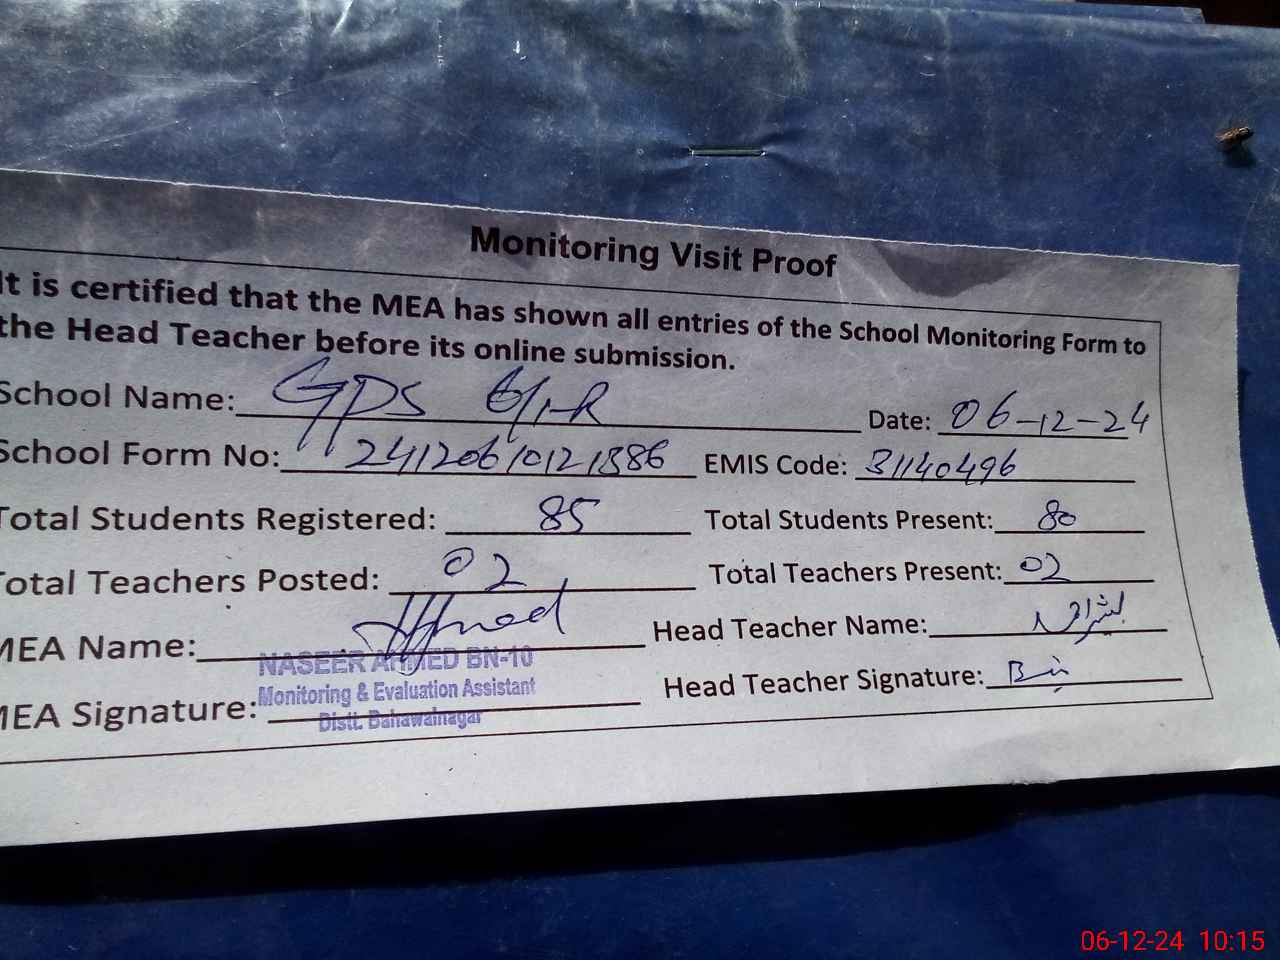 Monitoring Visit Proof
It is certified that the MEA has shown all entries of the School Monitoring Form to
the Head Teacher before its online submission.
School Name: GPS 6/1-R Date: 06-12-24
School Form No: 24120610121386 EMIS Code: 31140496
Total Students Registered: 85 Total Students Present: 80
Total Teachers Posted: 02 Total Teachers Present: 02
MEA Name: Head Teacher Name:
NASEER AHMED BN-10
Monitoring & Evaluation Assistant
MEA Signature: Head Teacher Signature:
Distt. Bahawalnagar
06-12-24 10:15